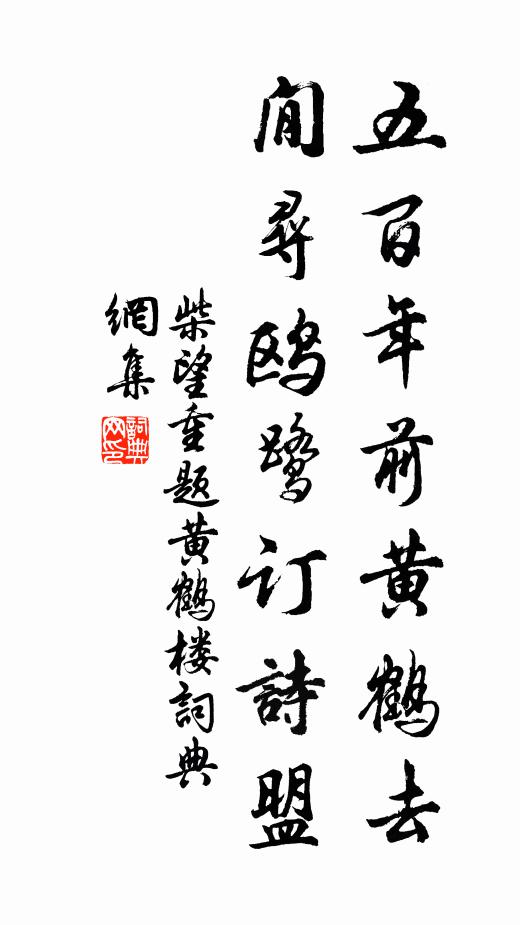 五百年前黄鶴去
閒尋鷗鷺訂詩盟
柴望重題黄鶴楼詞典
網集
詞典
网印